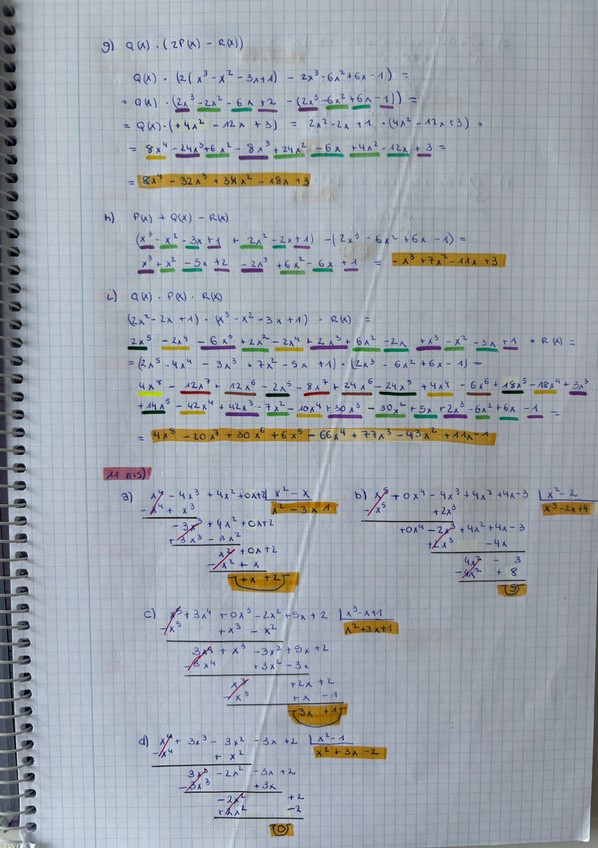 g) Q(x) · (2P(x) - R(x))
Q(x) · (2(x³ - x² - 3x + 1) - 2x³ - 6x² + 6x - 1) =
= Q(x) · (2x³ - 2x² - 6x + 2 - (2x³ - 6x² + 6x - 1)) =
= Q(x) · (+4x² - 12x + 3) = 2x² - 2x + 1 · (4x² - 12x + 3) =
= 8x⁴ - 24x³ + 6x² - 8x³ + 24x² - 6x + 4x² - 12x + 3 =
= 8x⁴ - 32x³ + 34x² - 18x + 3
h) P(x) + Q(x) - R(x)
(x³ - x² - 3x + 1 + 2x² - 2x + 1) - (2x³ - 6x² + 6x - 1) =
x³ + x² - 5x + 2 - 2x³ + 6x² - 6x + 1 = -x³ + 7x² - 11x + 3
i) Q(x) · P(x) · R(x)
(2x² - 2x + 1) · (x³ - x² - 3x + 1) · R(x) =
2x⁵ - 2x⁴ - 6x³ + 2x² - 2x⁴ + 2x³ + 6x² - 2x + x³ - x² - 3x + 1 · R(x) =
= (2x⁵ - 4x⁴ - 3x³ + 7x² - 5x + 1) · (2x³ - 6x² + 6x - 1) =
4x⁸ - 12x⁷ + 12x⁶ - 2x⁵ - 8x⁷ + 24x⁶ - 24x⁵ + 4x⁴ - 6x⁶ + 18x⁵ - 18x⁴ + 3x³
+14x⁵ - 42x⁴ + 42x³ - 7x² - 10x⁴ + 30x³ - 30x² + 5x + 2x³ - 6x² + 6x - 1 =
= 4x⁸ - 20x⁷ + 30x⁶ + 6x⁵ - 66x⁴ + 77x³ - 43x² + 11x - 1
a) x⁴ - 4x³ + 4x² + 0x + 2 | x² - x
- x⁴ + x³ x² - 3x 1
- 3x³ + 4x² + 0x + 2
+ 3x³ - 3x²
x² + 0x + 2
- x² + x
+ x + 2
b) x⁵ + 0x⁴ - 4x³ + 4x² + 4x - 3 | x² - 2
- x⁵ + 2x³ x³ - 2x + 4
+0x⁴ - 2x³ + 4x² + 4x - 3
+ 2x³ - 4x
4x² - 3
- 4x² + 8
5
c) x⁵ + 3x⁴ + 0x³ - 2x² + 5x + 2 | x³ - x + 1
- x⁵ + x³ - x² x² + 3x + 1
3x⁴ + x³ - 3x² + 5x + 2
- 3x⁴ + 3x² - 3x
x³ + 2x + 2
- x³ + x - 1
3x + 1
d) x⁴ + 3x³ - 3x² - 3x + 2 | x² - 1
- x⁴ + x² x² + 3x - 2
3x³ - 2x² - 3x + 2
- 3x³ + 3x
- 2x² + 2
+ 2x² - 2
0